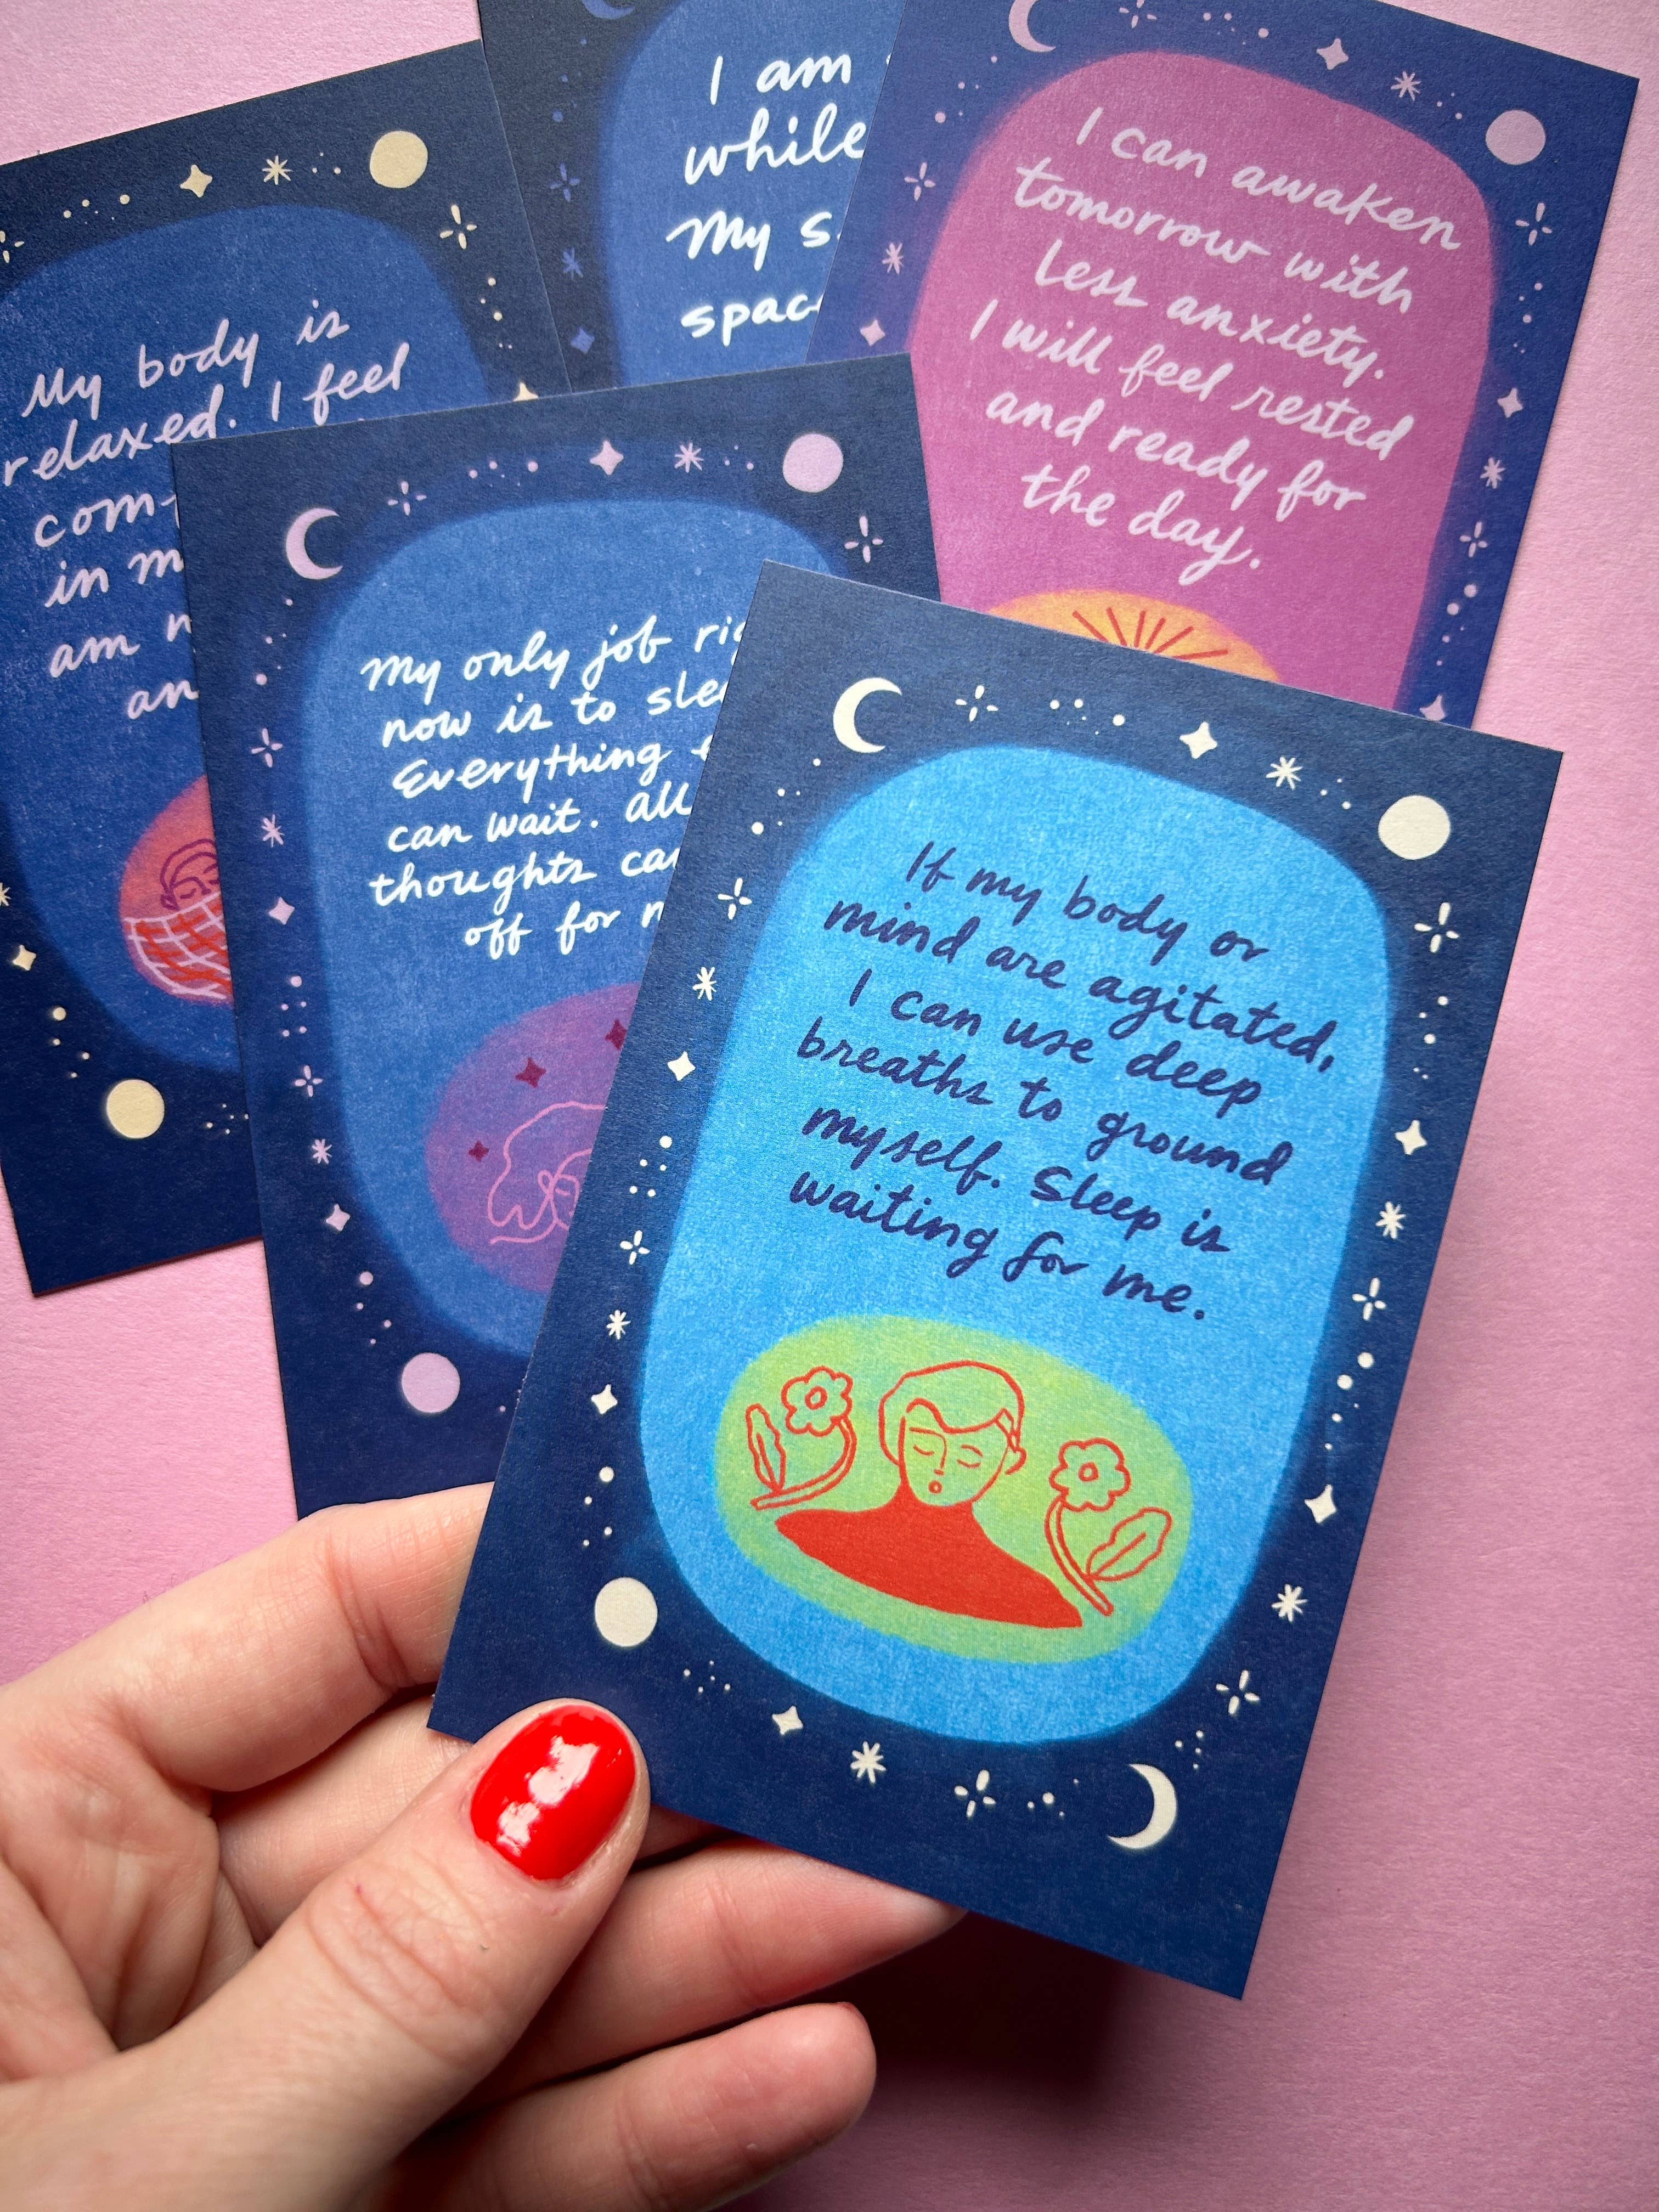 My body is
relaxed. I feel
com-
in
am
I am
while
My
I can awaken
tomorrow with
less anxiety.
I will feel rested
and ready for
the day.
My only job
now is to
Everything
can wait. All
thoughts
off for
If my body or
mind are agitated,
I can use deep
breaths to ground
myself. Sleep is
waiting for me.